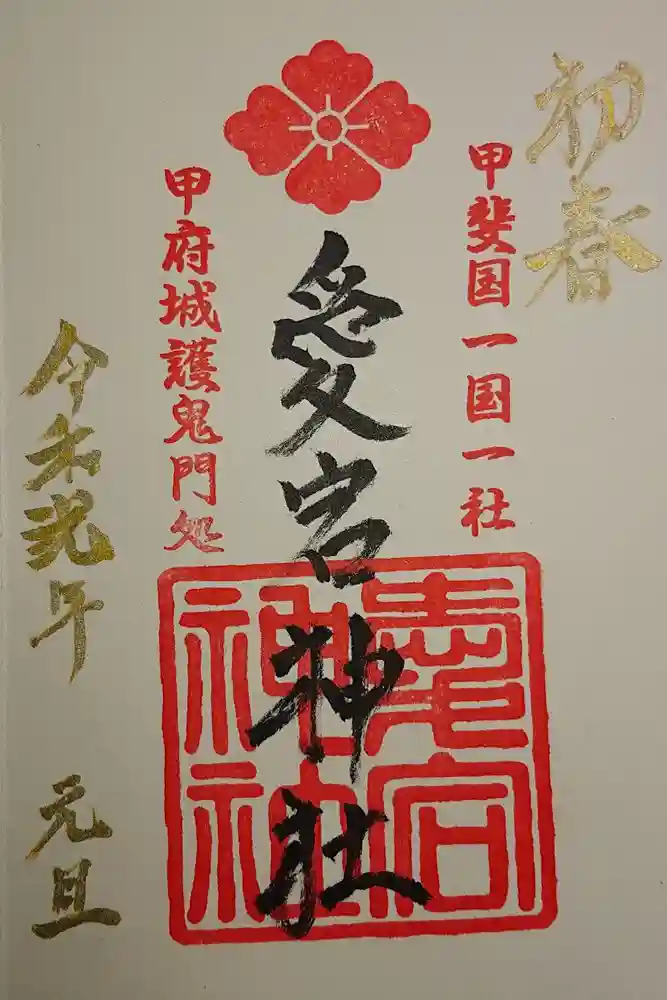 初春
甲斐国一国一社
愛宕神社
甲府城護鬼門処
令和弐年 元旦
愛宕
神社